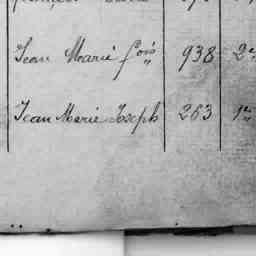 Jean Marie fois 938 2e
Jean Marie Joseph 263 1er